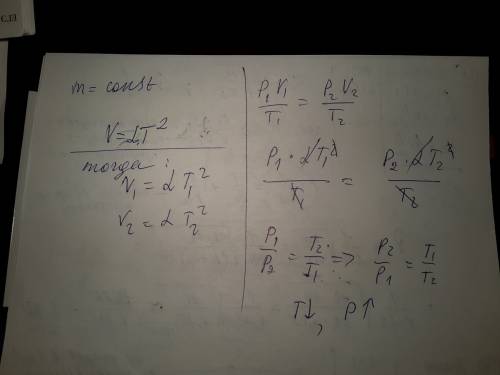 С,13
m = const
V = αT²
тогда :
V₁ = α T₁²
V₂ = α T₂²
P₁ V₁ / T₁ = P₂ V₂ / T₂
P₁ · αT₁² / T₁ = P₂ · αT₂² / T₂
P₁ / P₂ = T₂ / T₁ => P₂ / P₁ = T₁ / T₂
T↓, P↑